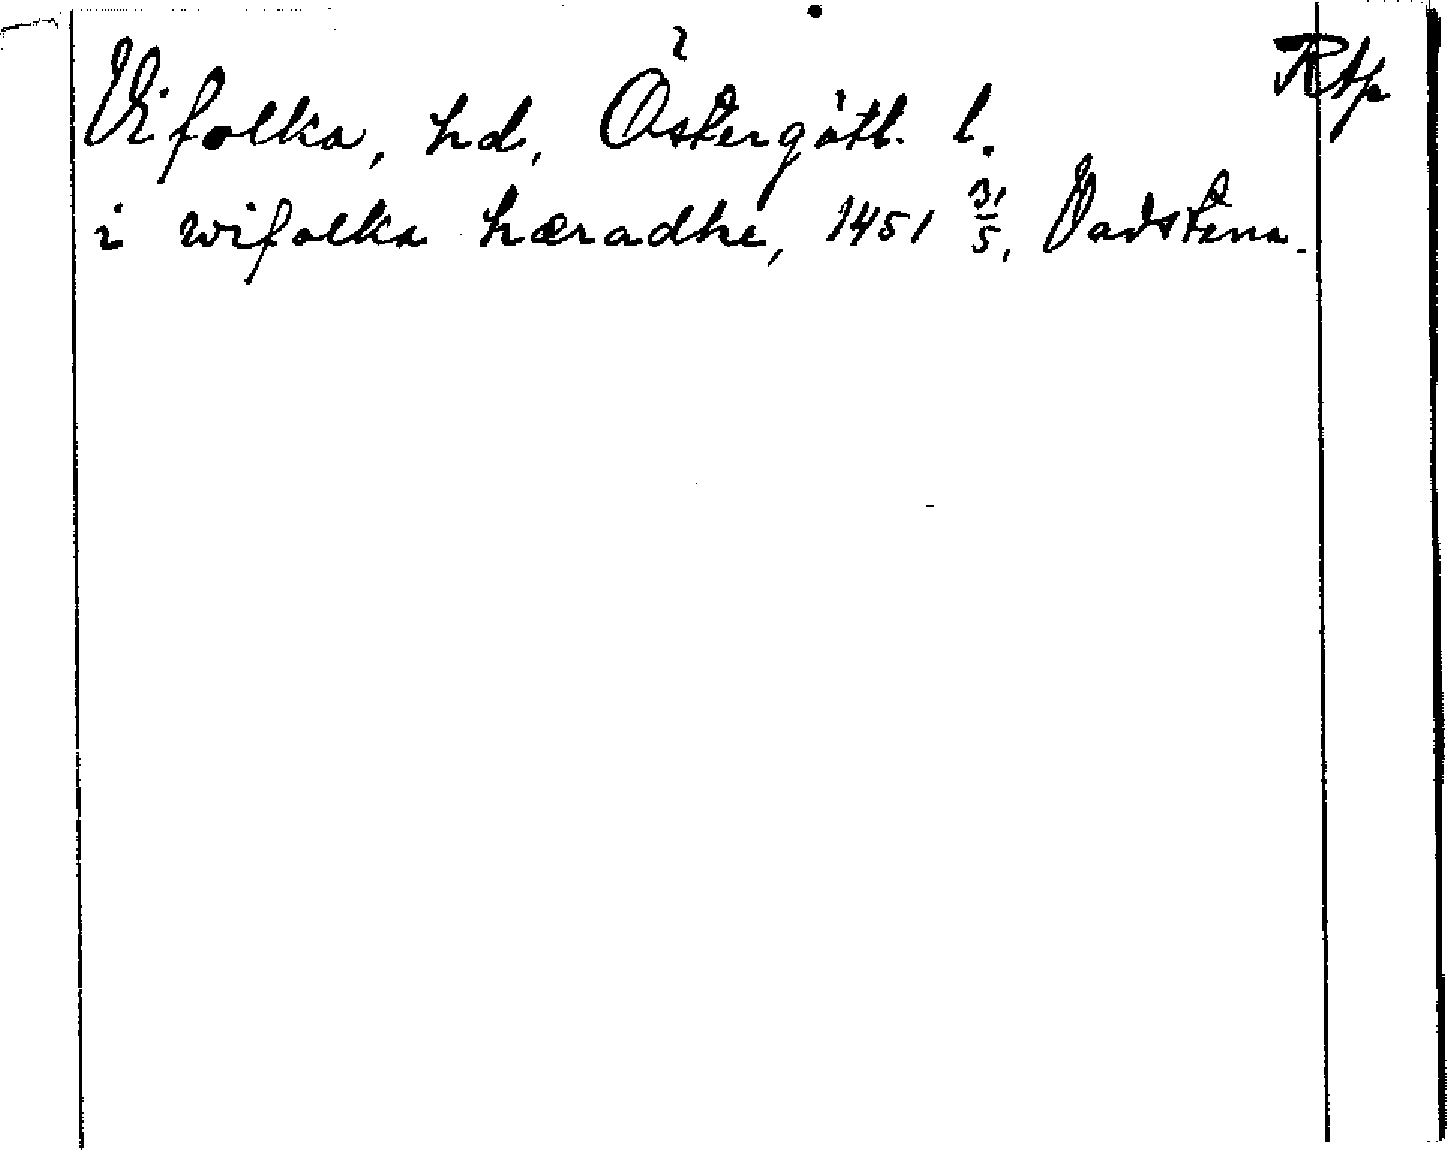 Vifolka, hd, Östergötl. l. RAp
i wifolka hæradhe, 1451 31/5, Vadstena.